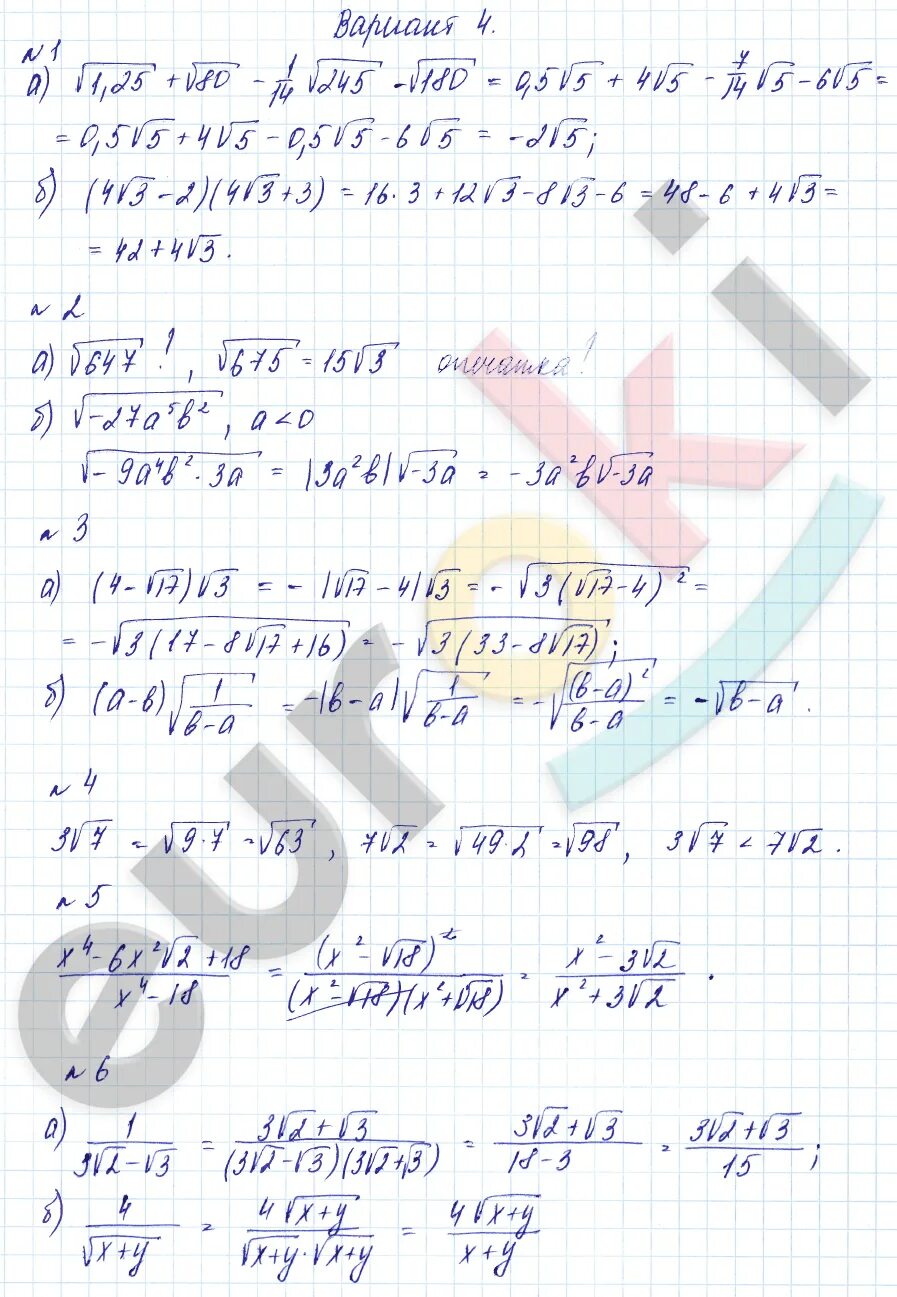 Вариант 4.
№1
а) √1,25 + √80 - 1/14 √245 - √180 = 0,5√5 + 4√5 - 7/14 √5 - 6√5 =
= 0,5√5 + 4√5 - 0,5√5 - 6√5 = -2√5;
б) (4√3 - 2)(4√3 + 3) = 16·3 + 12√3 - 8√3 - 6 = 48 - 6 + 4√3 =
= 42 + 4√3.
№2
а) √647 !, √675 = 15√3 опечатка!
б) √(-27a⁵b²), a < 0
√(-9a⁴b²·3a) = |3a²b|√(-3a) = -3a²b√(-3a)
№3
а) (4 - √17)√3 = -|√17 - 4|√3 = -√(3(√17 - 4)²) =
= -√(3(17 - 8√17 + 16)) = -√(3(33 - 8√17));
б) (a - b)√(1/(b - a)) = -|b - a|√(1/(b - a)) = -√((b - a)²/(b - a)) = -√(b - a).
№4
3√7 = √(9·7) = √63, 7√2 = √(49·2) = √98, 3√7 < 7√2.
№5
(x⁴ - 6x²√2 + 18)/(x⁴ - 18) = (x² - √18)²/((x² - √18)(x² + √18)) = (x² - 3√2)/(x² + 3√2).
№6
а) 1/(3√2 - √3) = (3√2 + √3)/((3√2 - √3)(3√2 + √3)) = (3√2 + √3)/(18 - 3) = (3√2 + √3)/15;
б) 4/√(x + y) = 4√(x + y)/(√(x + y)·√(x + y)) = 4√(x + y)/(x + y)
euroki